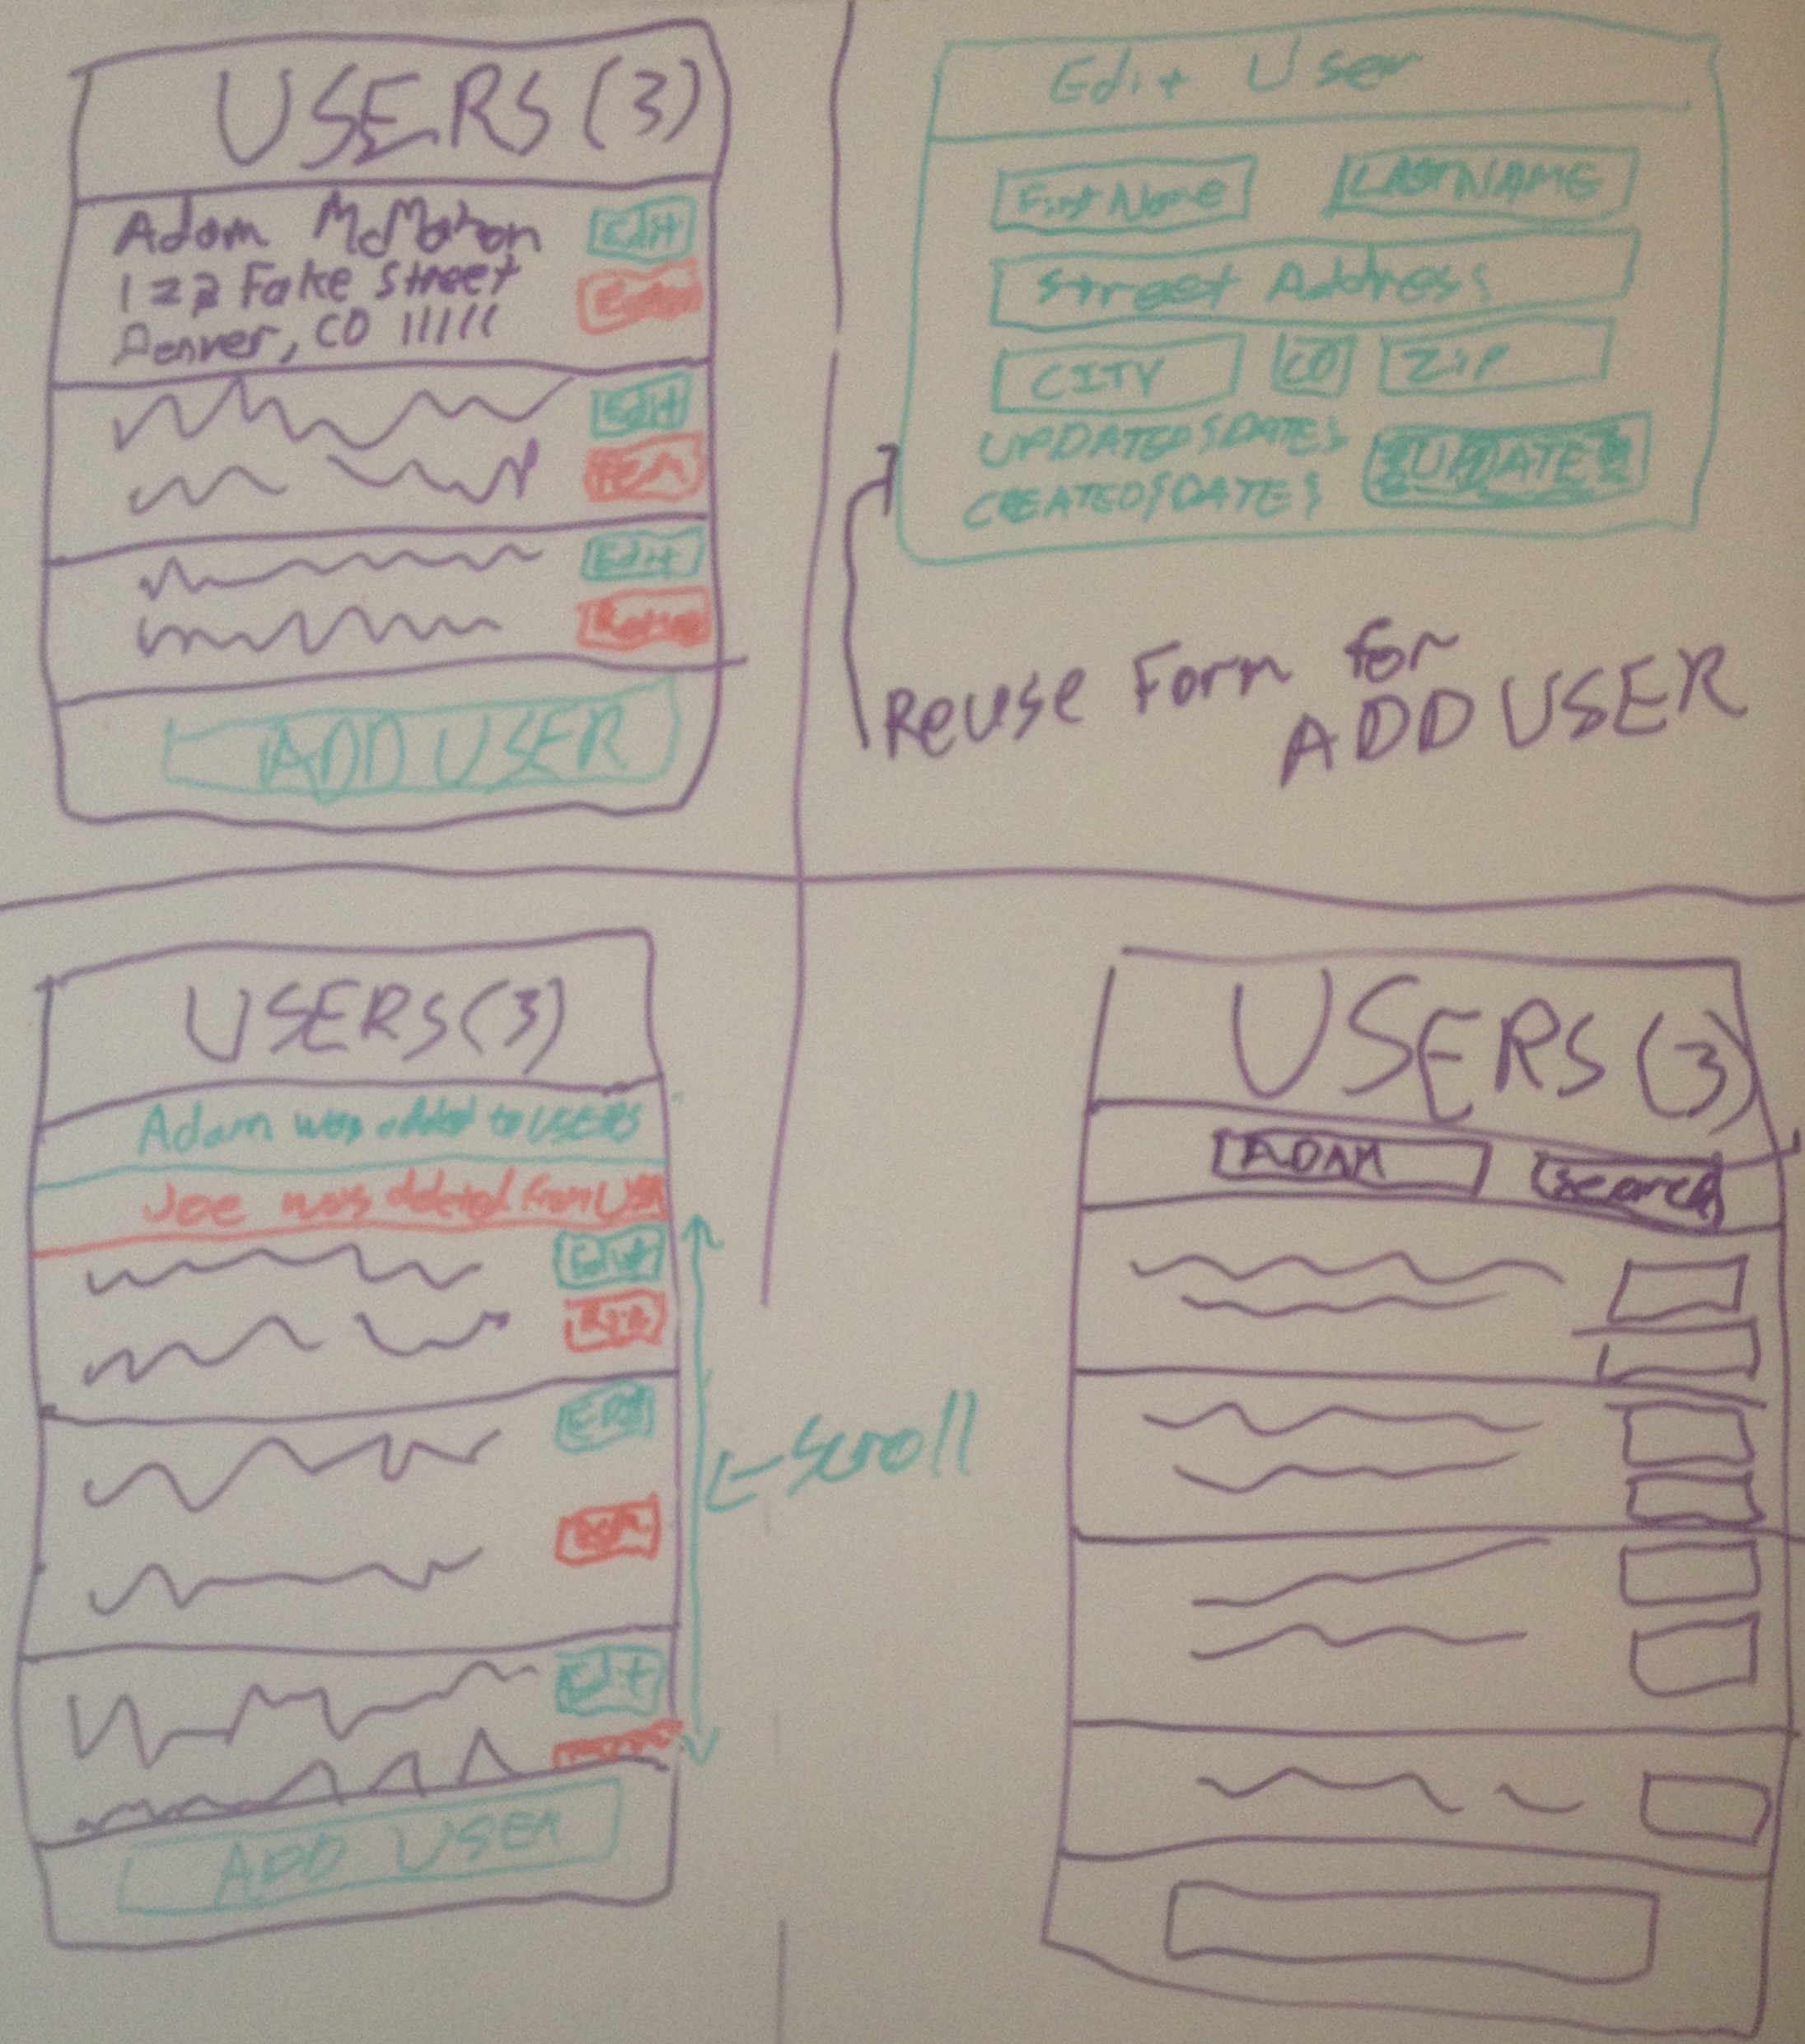 USERS (3)
Adam McMahon
122 Fake Street
Denver, CO 11111
Edit
Edit
REM
Edit
ADD USER
Edit User
First Name
LASTNAME
Street Address
CITY
CO
ZIP
UPDATED {DATE}
CREATED {DATE}
UPDATE
Reuse Form for
ADD USER
USERS (3)
Adam was added to USERS
Joe was deleted from
Edit
Edit
ADD USER
Scroll
USERS (3)
ADAM
Search